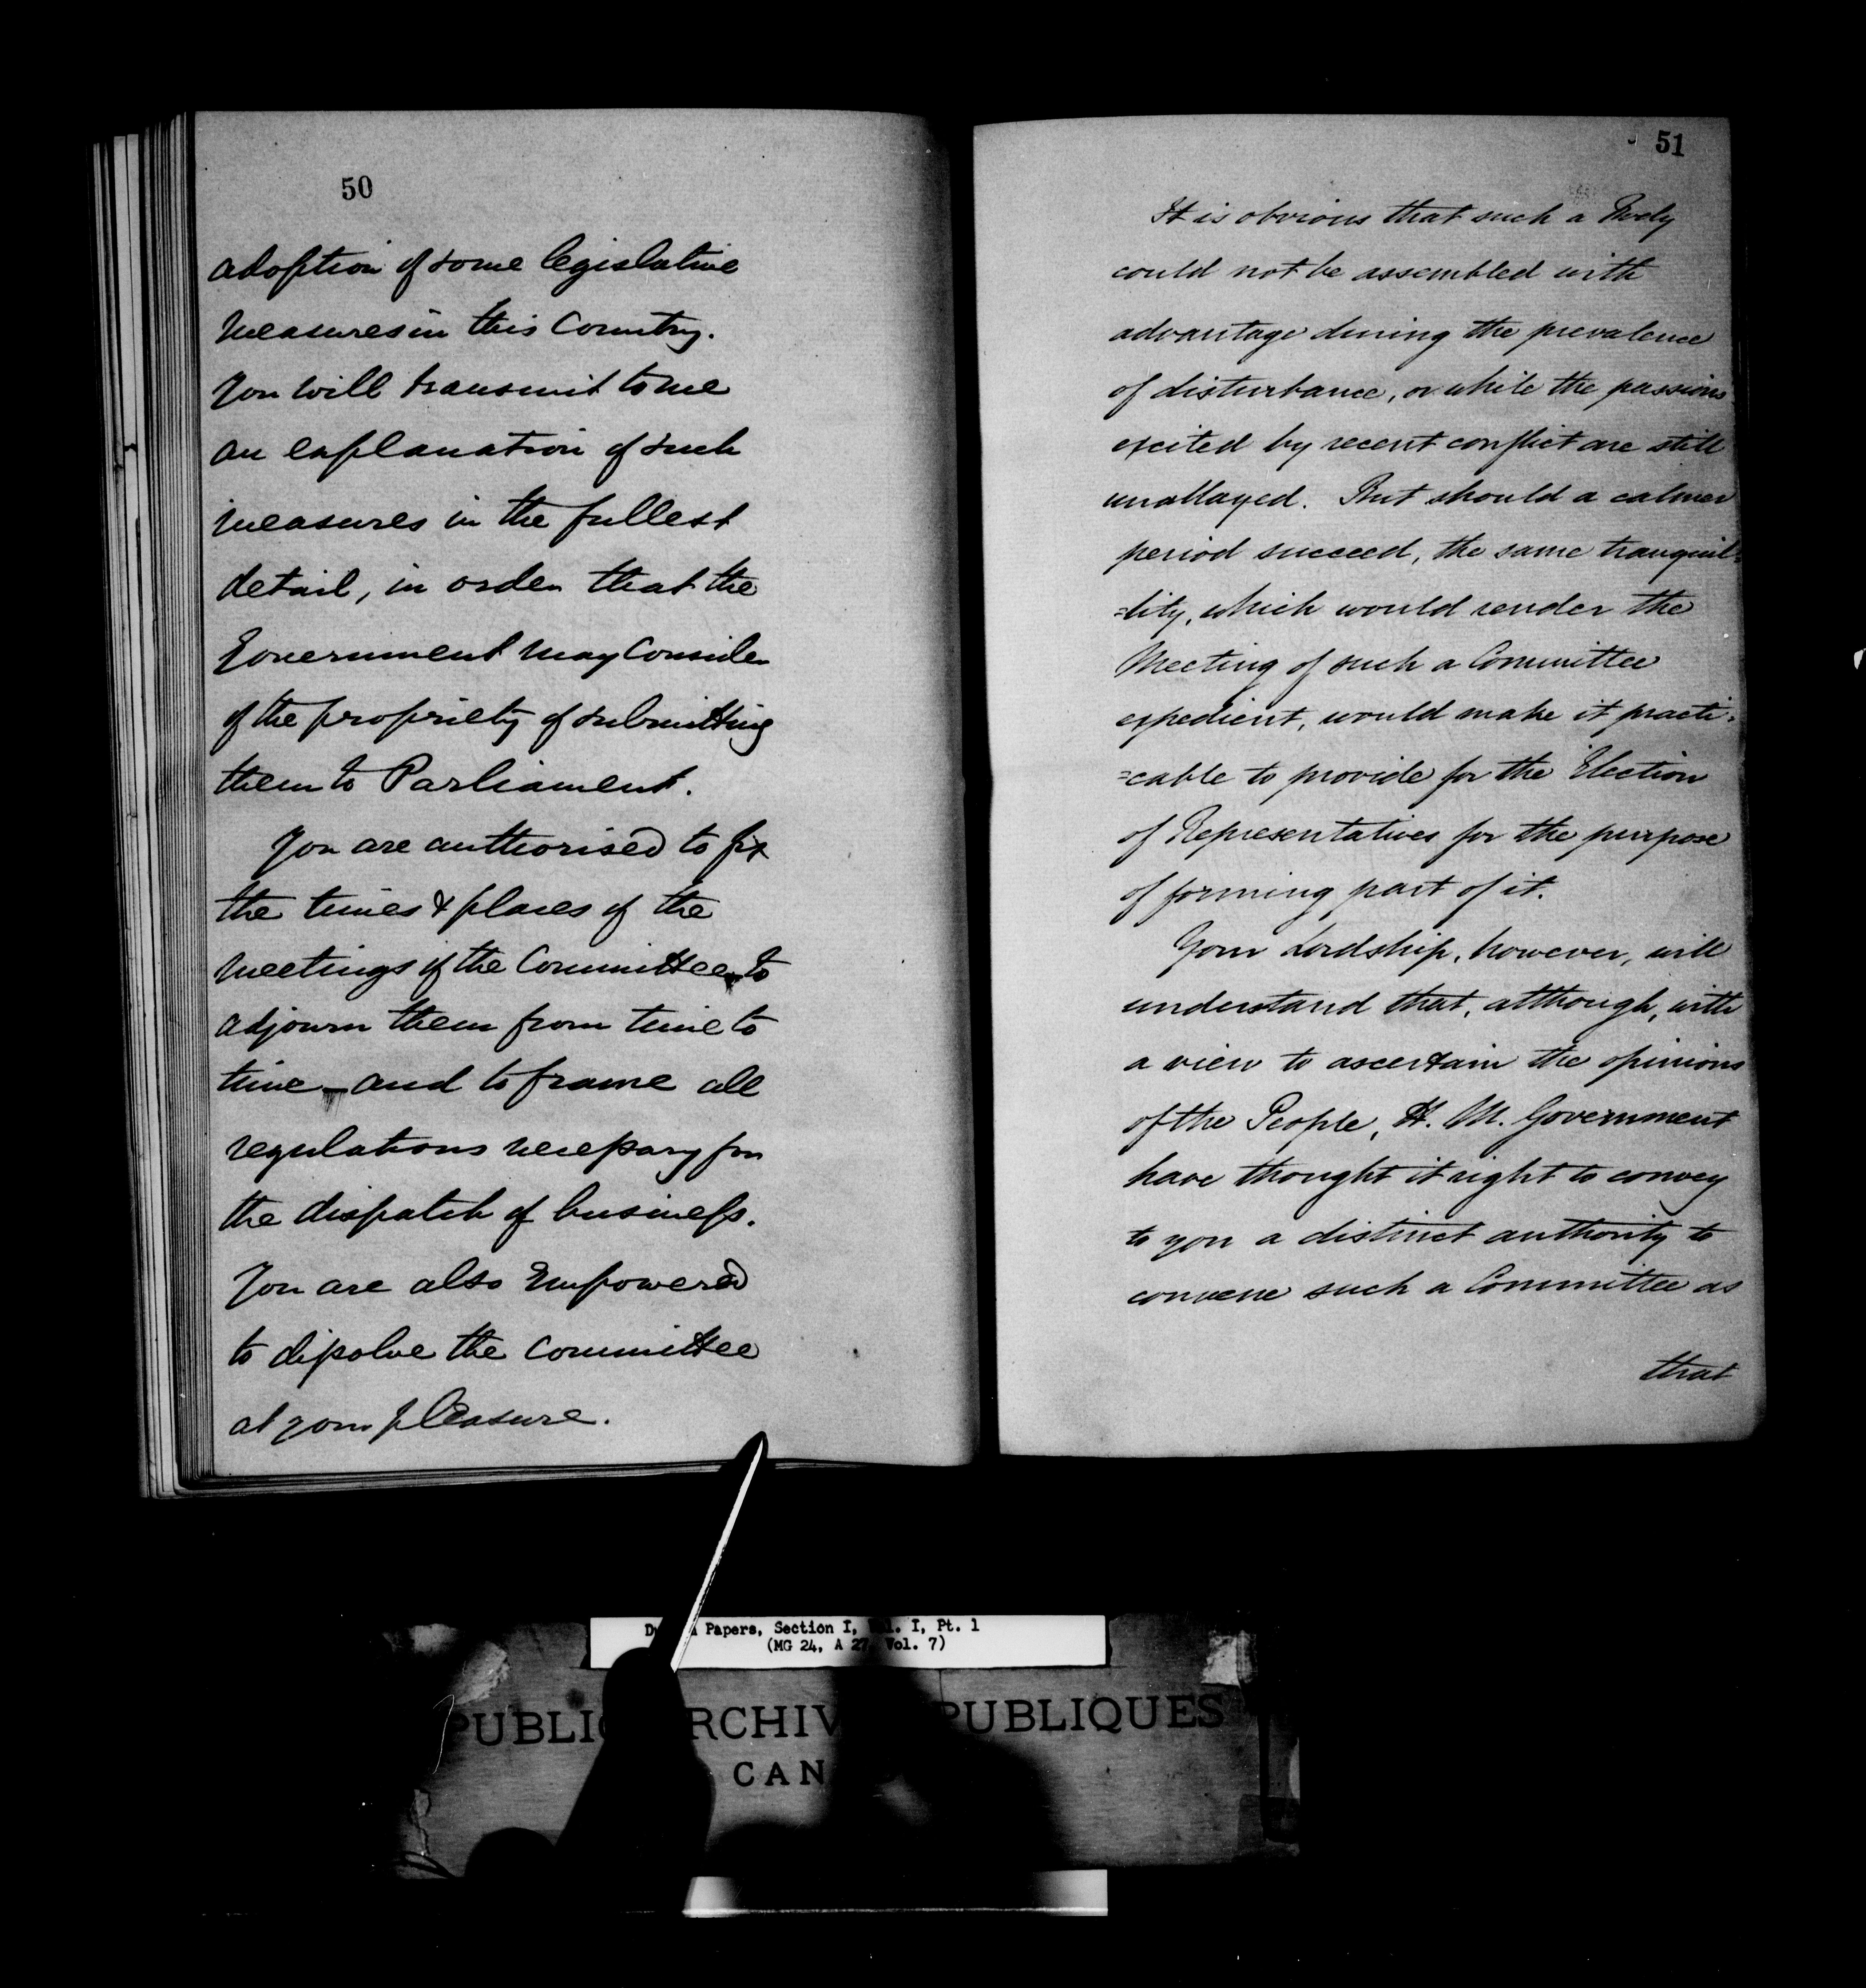 50
adoption of some legislative
measures in this Country.
You will transmit to me
an explanation of such
measures in the fullest
detail, in order that the
Government may consider
of the propriety of submitting
them to Parliament.
You are authorised to fix
the times & places of the
meetings of the Committee, to
adjourn them from time to
time — and to frame all
regulations necessary for
the dispatch of business.
You are also Empowered
to dissolve the Committee
at your pleasure.
51
It is obvious that such a Body
could not be assembled with
advantage during the prevalence
of disturbance, or while the passions
excited by recent conflict are still
unallayed. But should a calmer
period succeed, the same tranquil=
=lity, which would render the
Meeting of such a Committee
expedient, would make it practi=
=cable to provide for the Election
of Representatives for the purpose
of forming part of it.
Your Lordship, however, will
understand that, although, with
a view to ascertain the opinions
of the People, H. M. Government
have thought it right to convey
to you a distinct authority to
convene such a Committee as
that
Papers, Section I, I, Pt. 1
(MG 24, A 27, Vol. 7)
PUBLIC ARCHIV PUBLIQUES
CAN